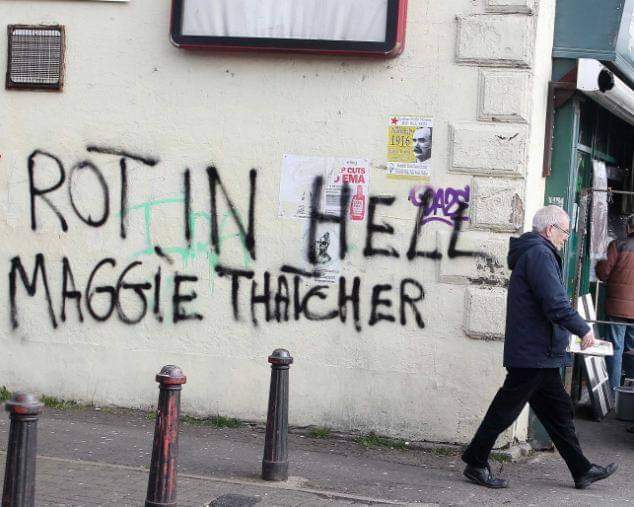 ROT IN HELL
MAGGIE THATCHER
1916
CUTS
EMA